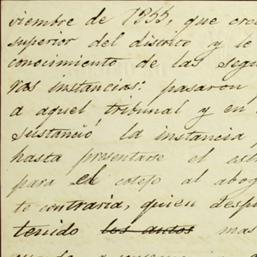 viembre de 1855, que cre
superior del distrito y le
conocimiento de las segu
das instancias: pasaron
a aquel tribunal y en
sustanció la instancia
hasta presentarse el
para el cotejo al abog
te contraria, quien desp
tenido los autos mas